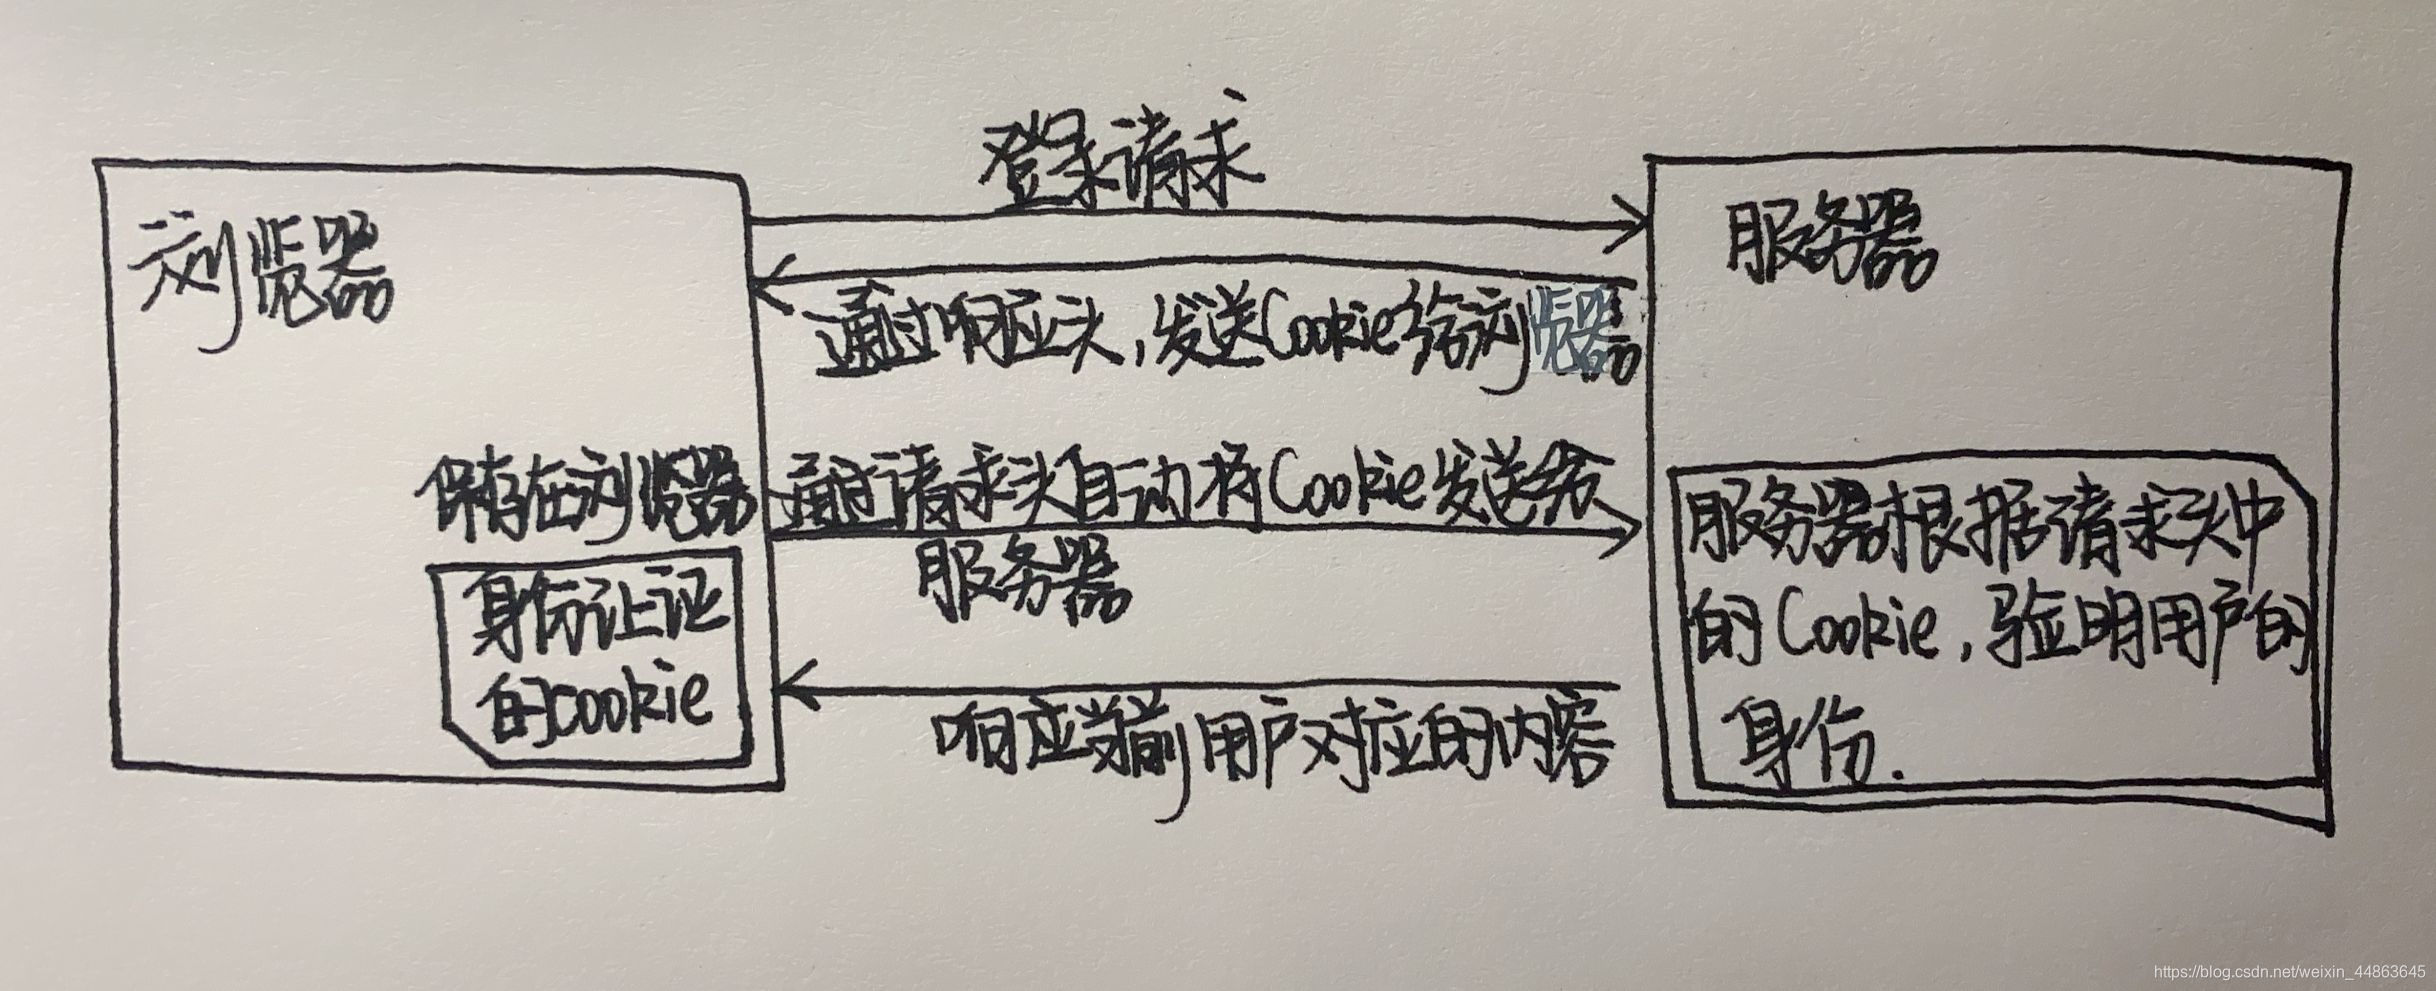 登录请求
浏览器
服务器
通过响应头,发送Cookie给浏览器
保存在浏览器
通过请求头自动将Cookie发送给
服务器
身份认证
的cookie
服务器根据请求头中
的Cookie,验明用户的
身份.
响应当前用户对应的内容
https://blog.csdn.net/weixin_44863645